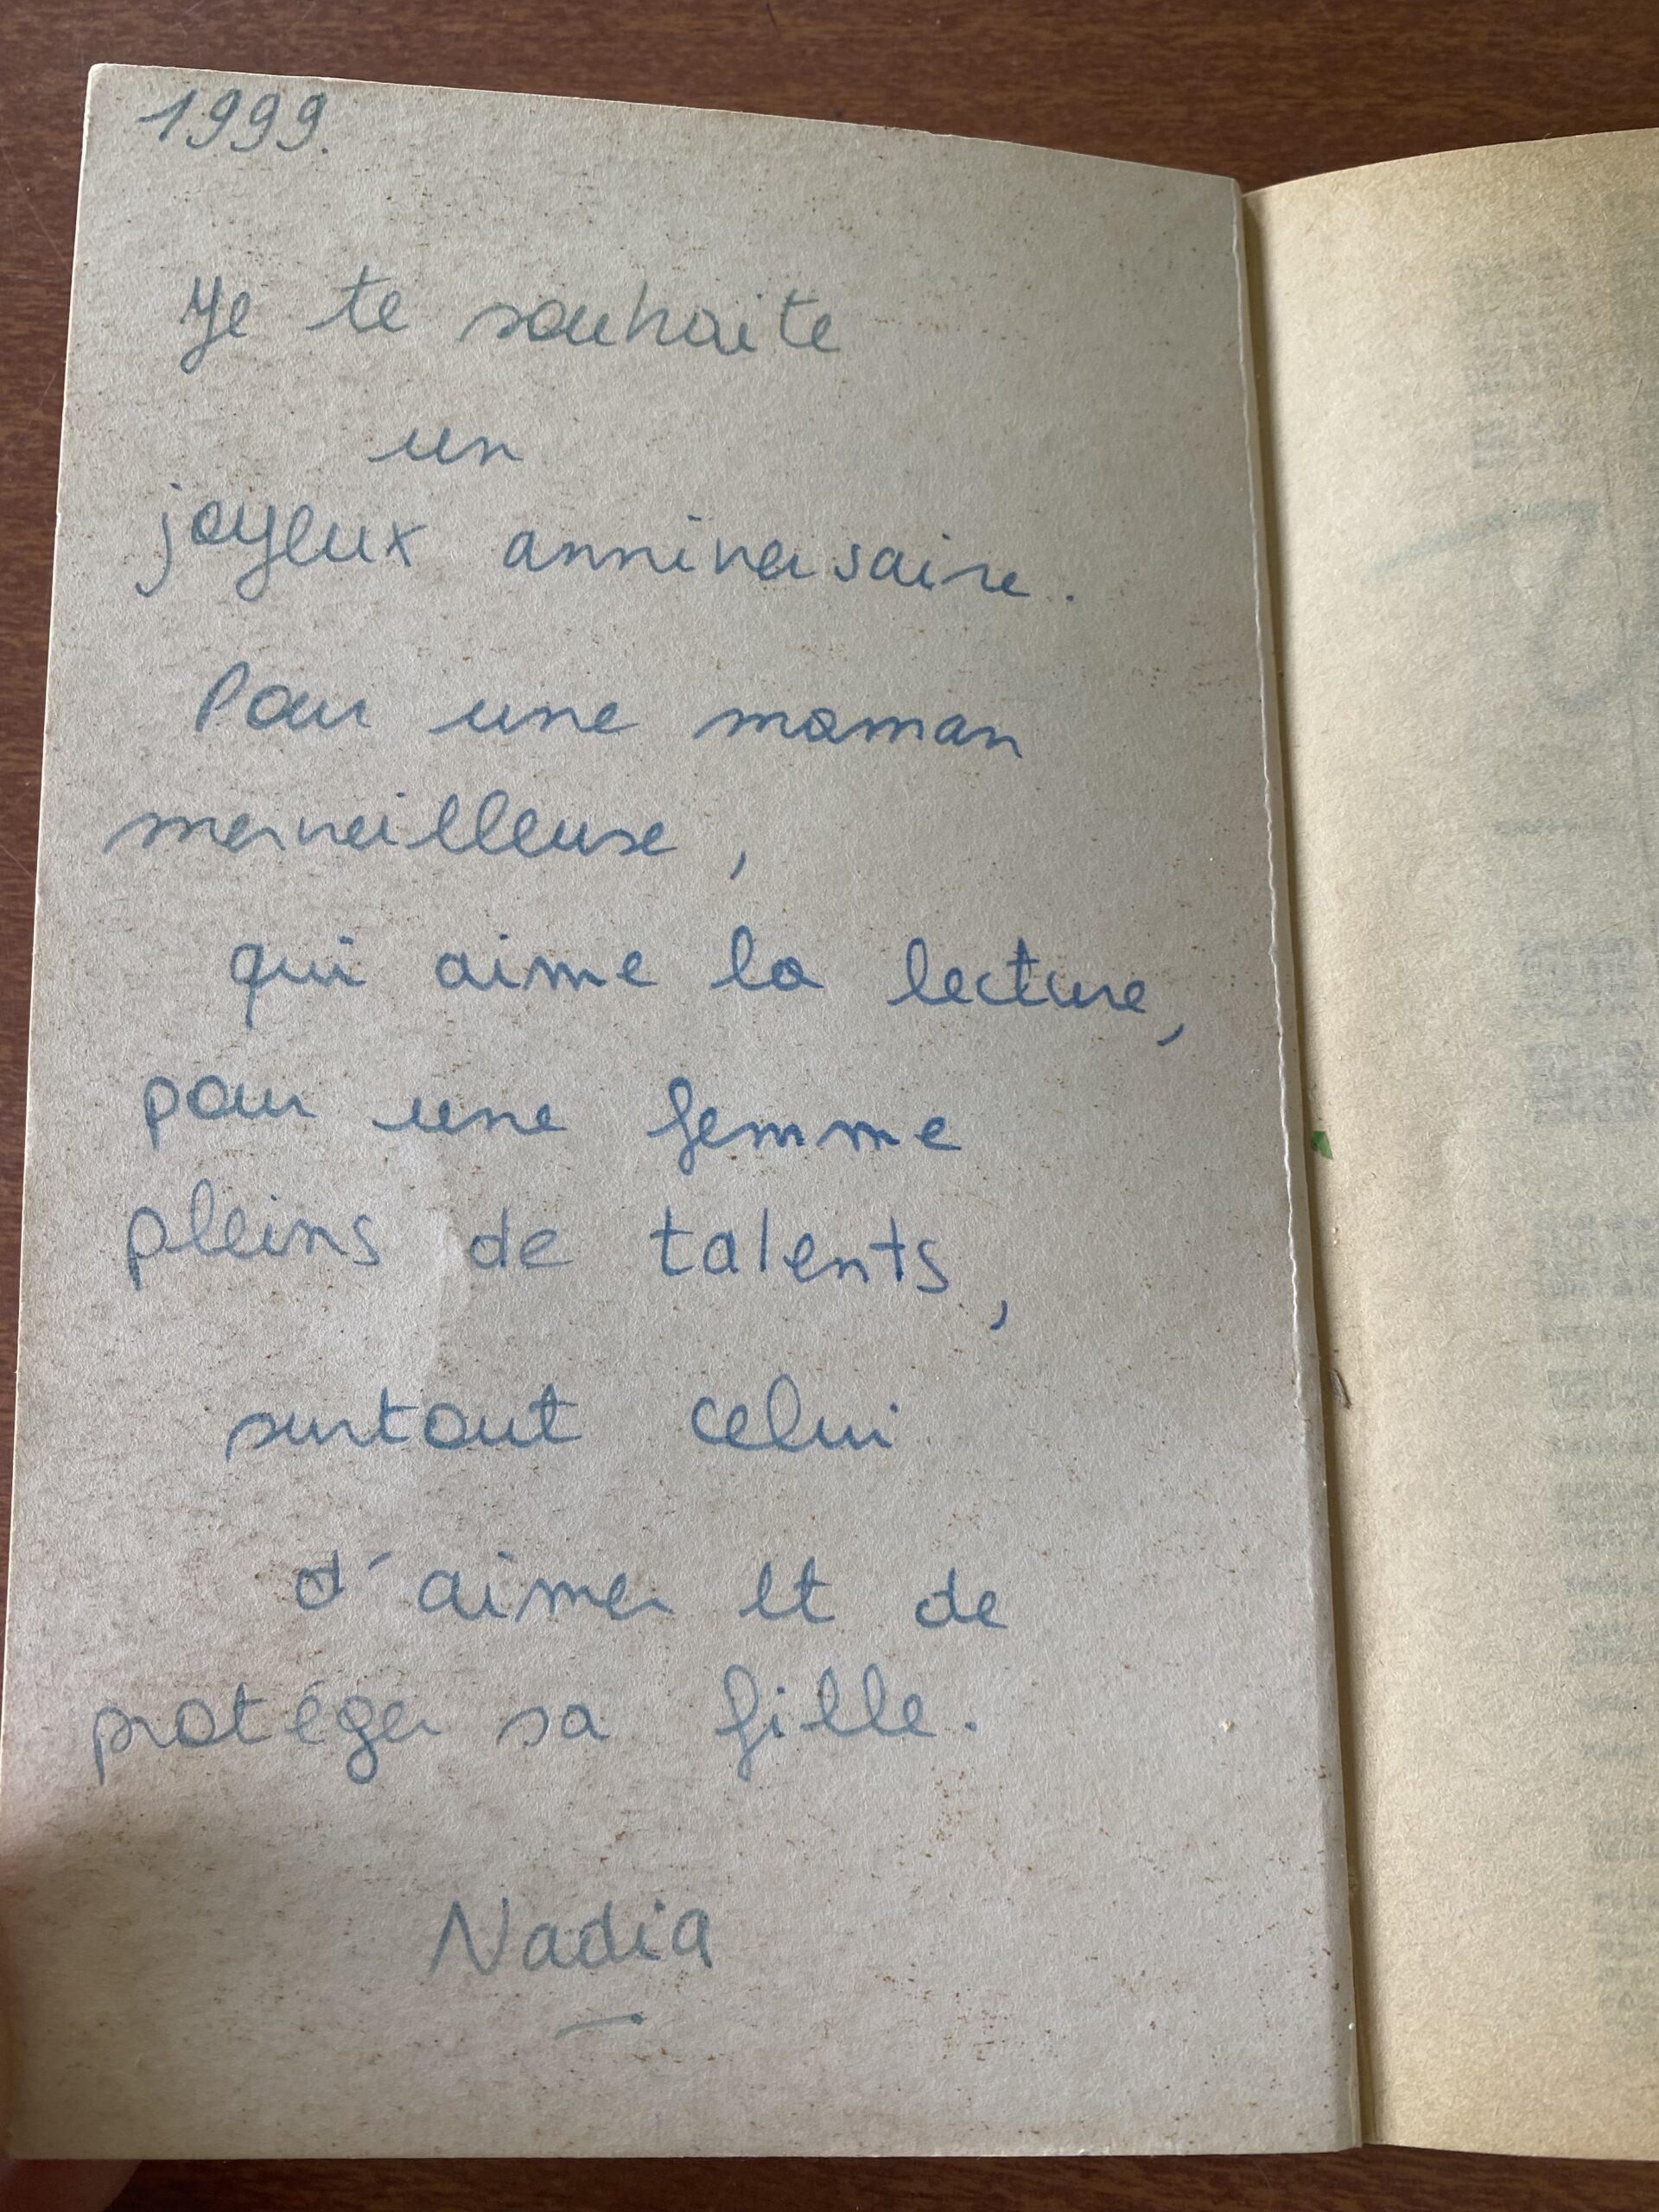 1999.
Je te souhaite
un
joyeux anniversaire.
Pour une maman
merveilleuse,
qui aime la lecture,
pour une femme
pleins de talents,
surtout celui
d'aimer et de
protéger sa fille.
Nadia